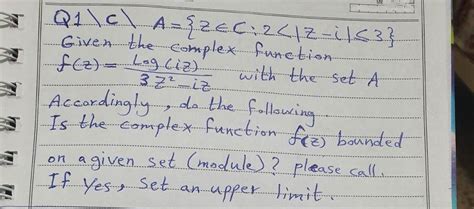 Q1\C\ A={Z∈C: 2<|Z-i|≤3}
Given the complex function
f(z)= Log(iz) / 3z²-iz with the set A
Accordingly, do the following.
Is the complex function f(z) bounded
on a given set (module)? please call.
If Yes, set an upper limit.